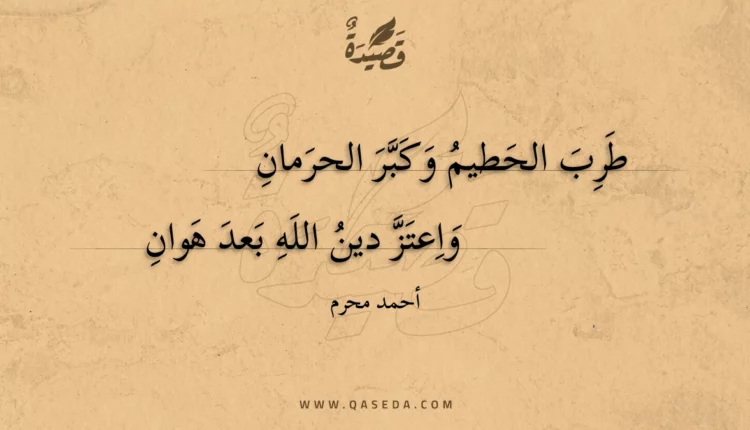 قَصِيْدَةٌ
طَرِبَ الحَطيمُ وَكَبَّرَ الحرَمانِ
وَاِعتَزَّ دينُ اللَهِ بَعدَ هَوانِ
أحمد محرم
WWW.QASEDA.COM